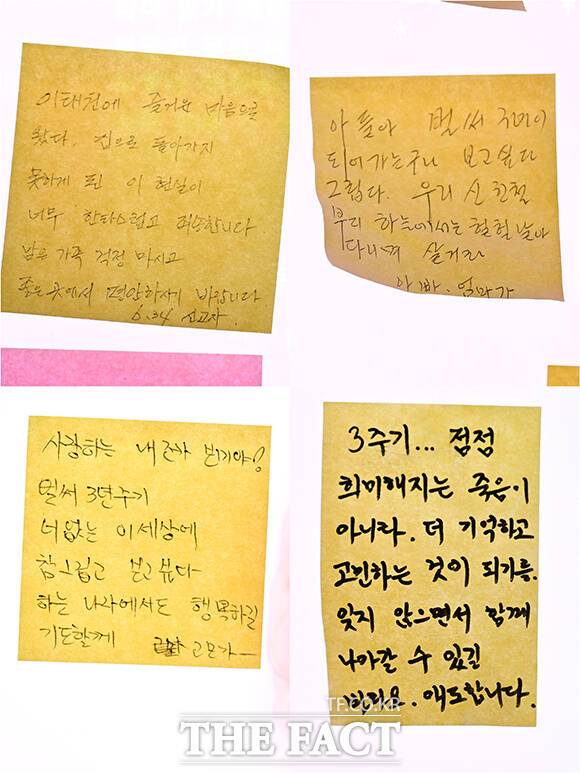 이태원에 즐거운 마음으로
왔다, 집으로 돌아가지
못하게 된 이 현실이
너무 한탄스럽고 죄송합니다
남은 가족 걱정 마시고
좋은 곳에서 편안하시기 바랍니다
6.34 신고자.
아 들아 벌써 3년이
되어가는구나 보고싶다
그립다. 우리 신
부디 하늘에서는 훨훨 날아
다니며 살거라
아빠. 엄마가
사랑하는 내 조카
벌써 3년주기
너 없는 이세상에
참 그립고 보고 싶다
하늘 나라에서도 행복하길
기도할게 고모가
3주기... 점점
희미해지는 죽음이
아니라. 더 기억하고
고민하는 것이 되기를.
잊지 않으면서 함께
나아갈 수 있길
바라요. 애도합니다.
TF.CO.KR
THE FACT